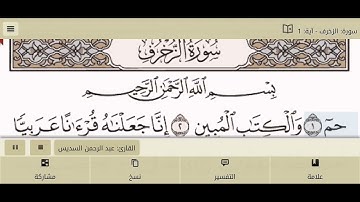 سورة: الزخرف - آية: 1
سُورَةُ الزُّخْرُفِ
بِسْمِ اللَّهِ الرَّحْمَٰنِ الرَّحِيمِ
حمٓ ١ وَالْكِتَابِ الْمُبِينِ ٢ إِنَّا جَعَلْنَاهُ قُرْءَانًا عَرَبِيًّا
القارئ: عبد الرحمن السديس
علامة التفسير نسخ مشاركة